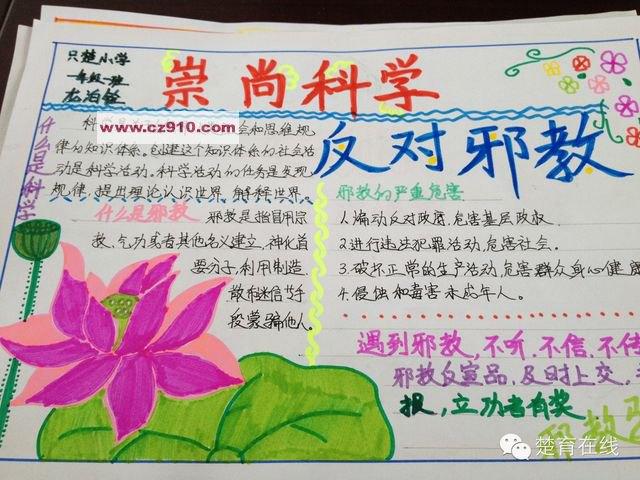 只楚小学
一年级一班
崇尚科学
反对邪教
什么是科学
www.cz910.com
会和思维规
律的知识体系。创建这个知识体系的社会活
动是科学活动。科学活动的任务是发现
规律,提出理论认识世界,解释世界。
什么是邪教
邪教是指冒用宗
教、气功或者其他名义建立,神化首
要分子,利用制造、
散布迷信等手
段蒙骗他人。
邪教的严重危害
1.煽动反对政府,危害基层政权.
2.进行违法犯罪活动,危害社会。
3.破坏正常的生产活动,危害群众身心健
4.侵蚀和毒害未成年人。
遇到邪教,不听.不信.不传
邪教反宣品,及时上交,
报,立功者有奖
邪教
楚育在线